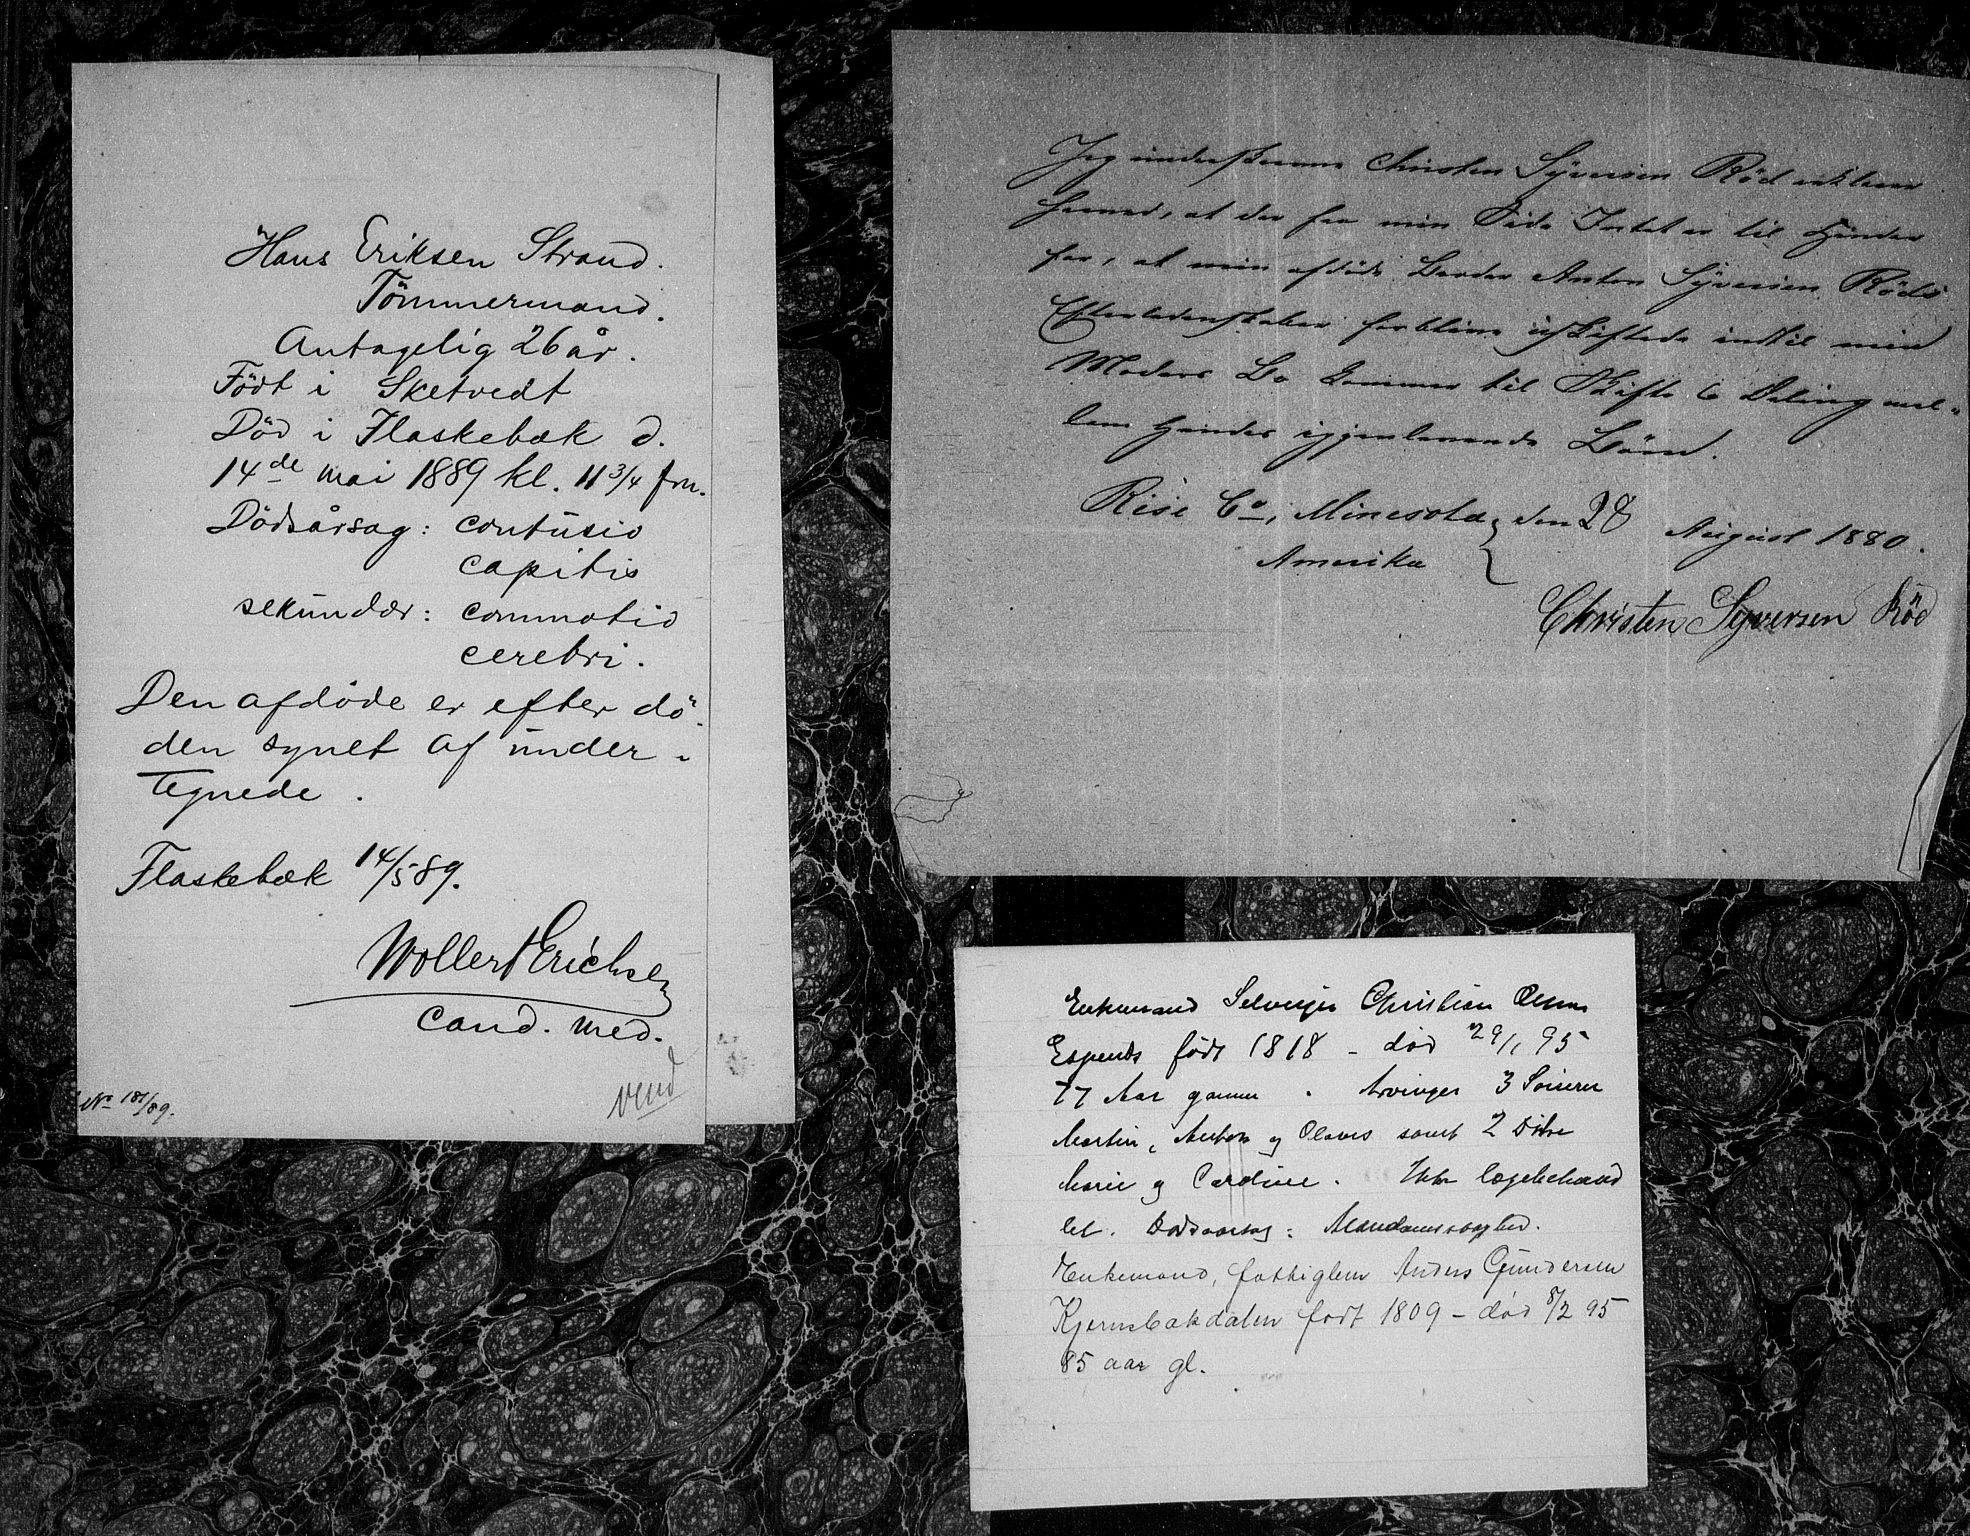 Hans Eriksen Strand.
Tömmermand.
Antagelig 26 år.
Födt i Sketvedt
Död i Flaskebæk d.
14de mai 1889 kl. 11 3/4 fm.
Dödsårsag: contusio
capitis
sekundær: commotio
cerebri.
Den afdöde er efter dö-
den synet af under-
tegnede.
Flaskebæk 14/5 89.
Wollert Erichsen
Cand. med.
vend
No 181/89.
Jeg underskrevne Christen Syversen Röd erklærer
herved, at der fra min Side Intet er til Hinder
for, at min afdöde Broder Anton Syversen Röds
Efterladenskaber forblive uskiftede indtil min
Moders Bo kommer til Skifte & Deling mel-
lem Hendes igjenlevende Börn.
Rise Co, Minesota, den 28 August 1880.
Amerika
Christen Syversen Röd
Enkemand Selveier Christian Olsen
Espenes født 1818 - død 29/1 95
77 Aar gammel. Arvinger 3 Sønner
Martin, Anton og Olaves samt 2 Døtre
Marie og Cardine. Ikke lægebehand
let. Dødsaarsag: Alderdomssvaghed.
Enkemand, fattiglem Anders Gundersen
Kjernsbakdalen født 1809 - død 8/2 95
85 aar gl.